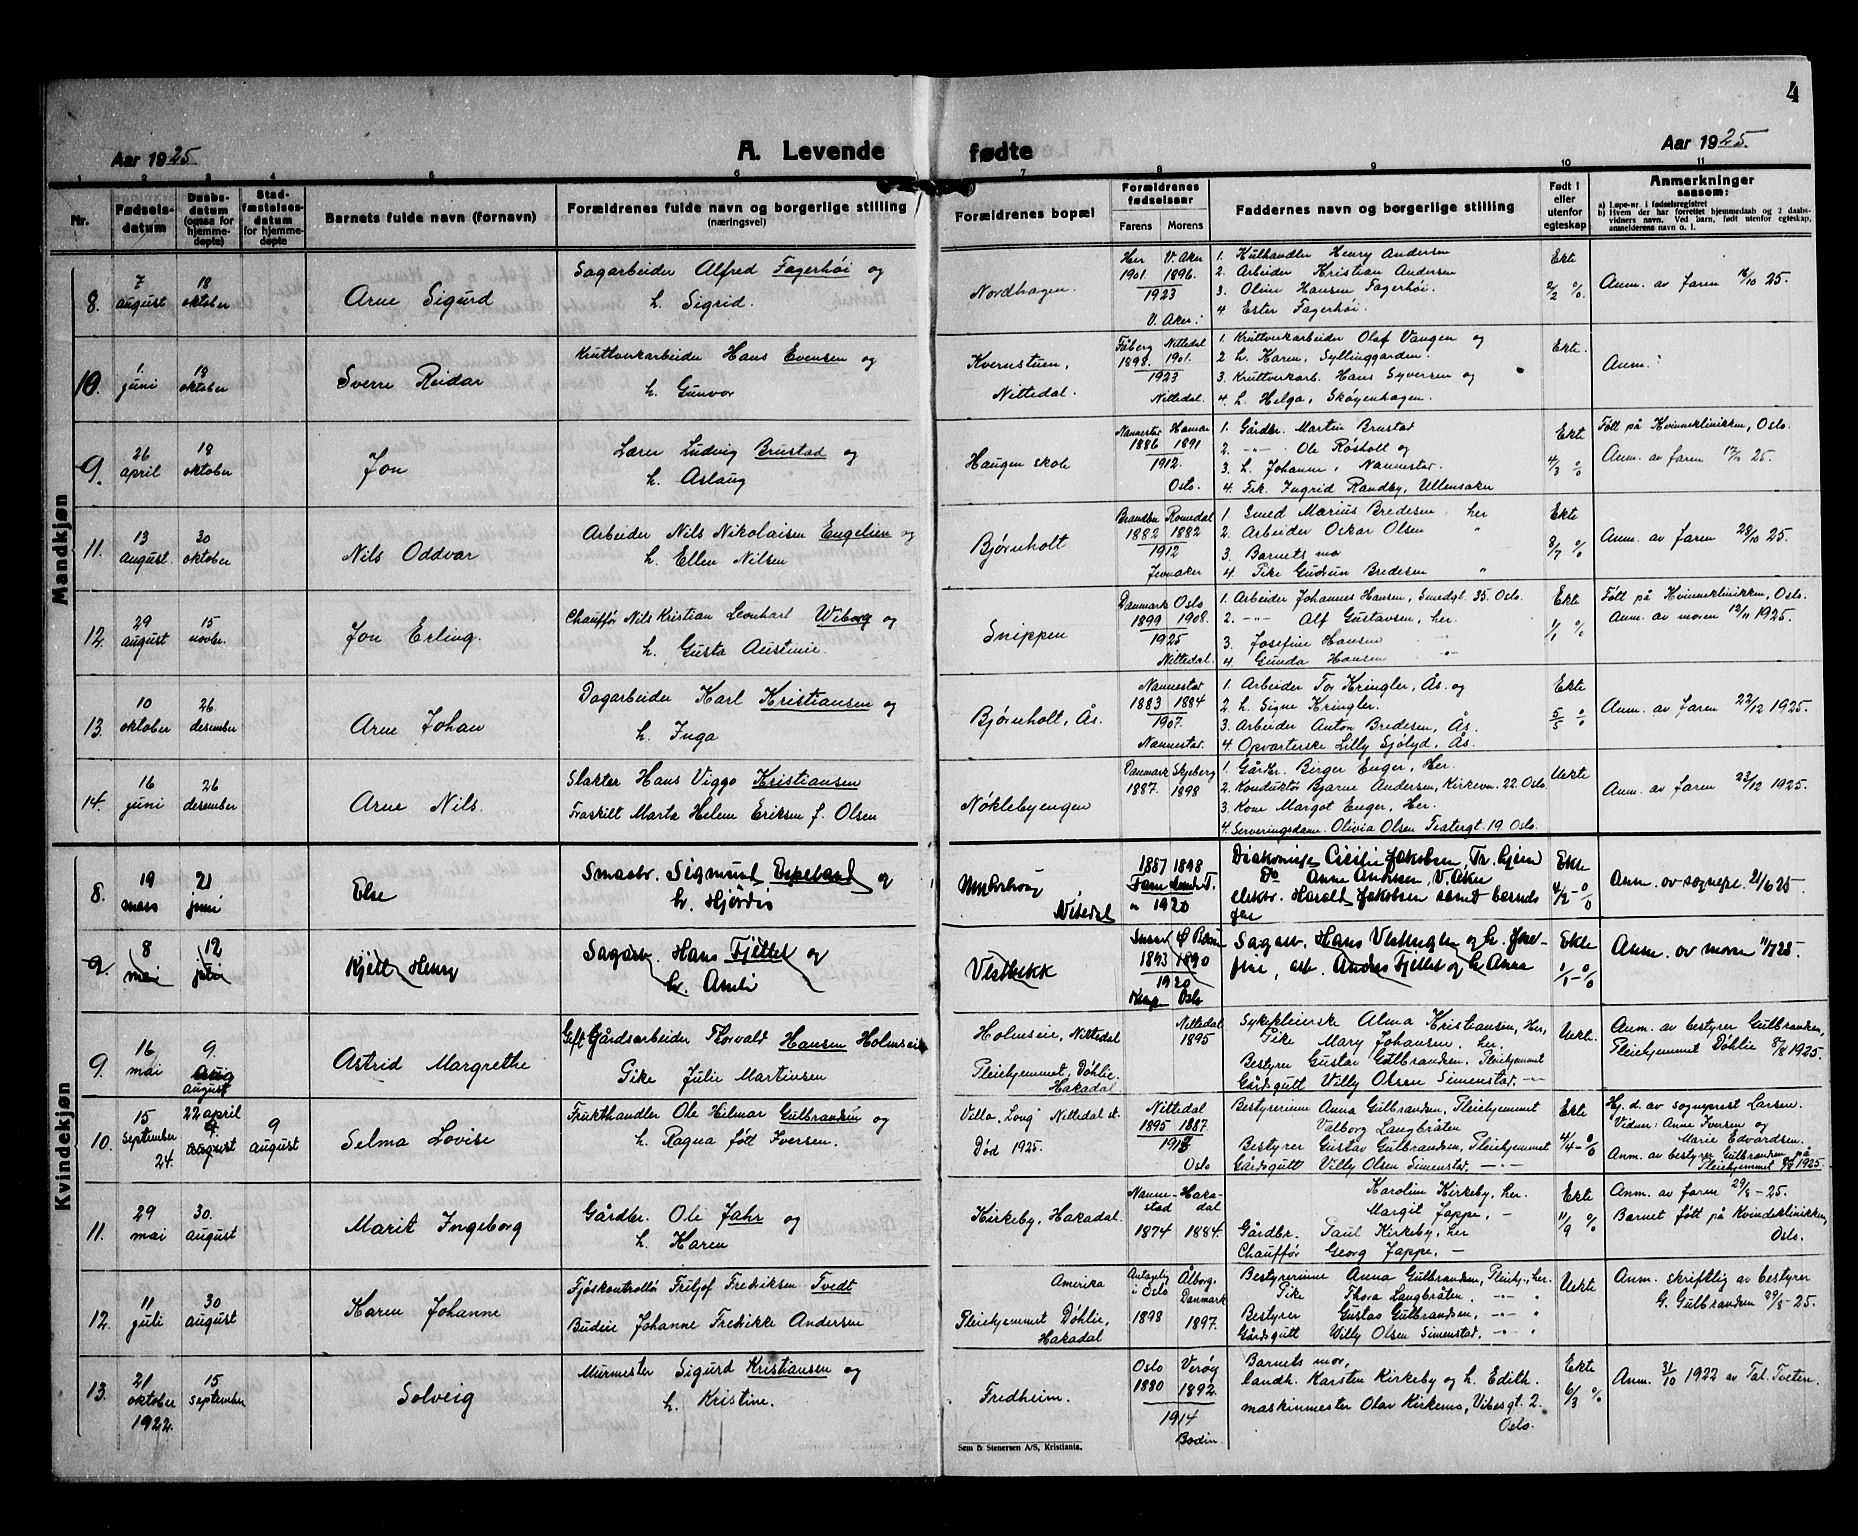 4
Aar 1925
A. Levende fødte
Aar 1925
1 2 3 4 5 6 7 8 9 10 11
Nr.
Fødsels-datum
Daabs-datum (ogsaa for hjemme-døpte)
Stad-fæstelses-datum for hjemme-døpte
Barnets fulde navn (fornavn)
Forældrenes fulde navn og borgerlige stilling (næringsvei)
Forældrenes bopæl
Forældrenes fødselsaar
Farens Morens
Faddernes navn og borgerlige stilling
Født i eller utenfor egteskap
Anmerkninger saasom:
a) Løpe-nr. i fødselsregistret
b) Hvem der har forrettet hjemmedaab og 2 daabsvidners navn. Ved barn, født utenfor egteskap, anmelderens navn o. l.
Mandkjøn
8. 7 august 18 oktober
Arne Sigurd
Sagarbeider Alfred Fagerhöi og
h. Sigrid.
Nordhagen.
Her V. Aker
1901. 1896.
1923
V. Aker.
1. Kulhandler Henry Andersen
2. Arbeider Kristian Andersen
3. Oline Hansen Fagerhöi.
4 Ester Fagerhöi.
Ekte
2/2 %.
Anm. av faren 16/10 25.
10. 1. juni 18 oktober
Sverre Reidar
Kruttverkarbeider Hans Evensen og
h. Gunvor
Kvernstuen,
Nittedal.
Fåberg Nittedal
1898. 1901.
1923
Nittedal.
1. Kruttverkarbeider Olaf Vangen og
2 h. Karen, Syllinggarden.
3. Kruttverkarb. Hans Syversen og
4. h. Helga, Skøyenhagen.
Ekte.
Anm.
9. 26 april 18 oktober
Jon
Lærer Ludvig Brustad og
h. Aslaug
Haugen skole
Nannestad Hamar
1886 1891
1912.
Oslo.
1. Gårdbr. Martin Brustad
2. -"- Ole Røsholt og
3. h. Johanne, Nannestad.
4. Frk. Ingrid Randby, Ullensaker
Ekte
4/3 %
Født på Kvinneklinikken, Oslo.
Anm. av faren 17/10 25.
11. 13 august. 30 oktober
Nils Oddvar
Arbeider Nils Nikolaisen Engelien og
h. Ellen Nilsen
Bjørnholt
Brandbu Romedal
1882 1882
1912
Jevnaker
1. Smed Marius Bredesen her
2. Arbeider Oskar Olsen "
3. Barnets mor
4. Pike Gudrun Bredesen "
Ekte
8/7 %
Anm. av faren 28/10 25.
12. 29 august 15 novbr.
Jon Erling.
Chauffør Nils Kristian Leonhart Wiborg og
h. Gusta Austinie.
Snippen
Danmark Oslo
1899 1908.
1925
Nittedal.
1. Arbeider Johannes Hansen, Smedgt. 35. Oslo.
2. -"- Alf Gustavsen, her.
3. Josefine Hansen
4. Gunda Hansen "
Ekte
1/1 %
Født på Kvinneklinikken, Oslo.
Anm. av moren 12/11 1925.
13. 10 oktober 26 desember
Arne Johan
Dagarbeider Karl Kristiansen og
h. Inga
Bjørnholt, Ås.
Nannestad
1883 1884
1907.
Nannestad.
1. Arbeider Tor Kringler, Ås. og
2. h. Signe Kringler.
3. Arbeider Anton Bredesen, Ås.
4. Opvarterske Lilly Sjölyd, Ås.
Ekte
5/5 %
Anm. av faren 22/12 1925.
14. 16 juni 26 desember
Arne Nils.
Slakter Hans Viggo Kristiansen
Fraskilt Marta Helene Eriksen f. Olsen
Nøklebyengen
Danmark Skjeberg
1887. 1898
1. Gårdbr. Birger Enger, Her.
2. Konduktør Bjarne Andersen, Kirkevn. 22. Oslo.
3. Kone Margot Enger, Her.
4. Serveringsdam. Olivia Olsen Teatergt. 19. Oslo.
Uekte
Anm. av faren 23/12 1925.
Kvindekjøn
8. 19 mars 21 juni
Else
Smaabr. Sigmund Espeland og
h. Hjördis
Nittedal
1887 1898
" 1920
Diakonisse Cecilie Jakobsen, Tr. hjem
Do Anne Andersen, V. Aker
elektr. Harald Jakobsen samt barnets
far
Ekte
4/2 - 0/0
Anm. av sognepr. 21/6 25.
9. 8 mai 12 juli
Kjell Henry
Sagarb. Hans Fjellet og
h. Amli
Vestbekk
1893 1890
1920
Oslo
Sagarb. Hans Vestengen og h. Jose-
fine, arb. Anders Fjellet og h. Anna
Ekte
1/1 - 0/0
Anm. av moren 11/7 25.
9. 16 mai 9. aug august
Astrid Margrethe
Gift Gårdsarbeider Thorvald Hansen Holmseie
Pike Julie Martinsen
Holmseie, Nittedal
Pleiehjemmet, Døhlie,
Hakadal
Nittedal
1895
Sykepleierske Alma Kristiansen, Her,
Pike Mary Johansen, her.
Bestyrer Gustav Gulbrandsen, Pleiehjemmet
Gårdsgutt Villy Olsen Simenstad. -"-
Uekte.
Anm. av bestyrer Gulbrandsen,
Pleiehjemmet Döhlie 8/8 1925.
10. 15 september 24. 22 april 9. august 9 august
Selma Lovise
Frukthandler Ole Hilmar Gulbrandsen og
h. Ragna født Iversen.
Villa „Long" Nittedal st.
Død 1925.
Nittedal
1895 1887.
1918
Oslo
Bestyrerinne Anna Gulbrandsen, Pleiehjemmet
Valborg Langbråten
Bestyrer Gustav Gulbrandsen, Pleiehjemmet
Gårdsgutt Villy Olsen Simenstad, -"-
Ekte
4/4 - 0/0
Hj. d. av sogneprest Larsen.
Vidner: Anne Iversen og
Marie Edvardsen.
Anm. av bestyrer Gulbrandsen på
Pleiehjemmet 8/8 1925.
11. 29 mai 30. august
Marit Ingeborg
Gårdbr. Ole Jahr og
h. Karen
Kirkeby, Hakadal.
Nanne-stad Haka-dal
1874 1884.
Karoline Kirkeby, her.
Margit Jappe, -
Gårdbr. Paul Kirkeby, her
Chauffør Georg Jappe, -
Ekte
11/9 %
Anm. av faren 29/8 - 25.
Barnet født på Kvindeklinikken,
Oslo.
12. 11 juli 30 august
Karen Johanne
Fjøskontrollør Fritjof Fredriksen Tvedt
Budeie Johanne Fredrikke Andersen
Amerika
Pleiehjemmet Döhlie,
Hakadal
Antagelig i Oslo Ålborg, Danmark
1898 1897.
Bestyrerinne Anna Gulbrandsen, Pleiehj., her.
Pike Thora Langbråten, -"- "
Bestyrer Gustav Gulbrandsen, -"- "
Gårdsgutt Willy Olsen Simenstad, -"- "
Uekte
Anm. skriftlig av bestyrer
G. Gulbrandsen 29/8 - 25.
13. 21 oktober 1922. 15 september
Solveig
Murmester Sigurd Kristiansen og
h. Kristine.
Fredheim.
Oslo Verøy
1880 1892.
1914
Bodin.
Barnets mor,
landh. Karsten Kirkeby og h. Edith.
maskinmester Olav Kirkemo, Vibesgt. 2.
Oslo.
Ekte
6/3 %
Anm. 31/10 1922 av Tal. Tveten.
Sem & Stenersen A/S, Kristiania.